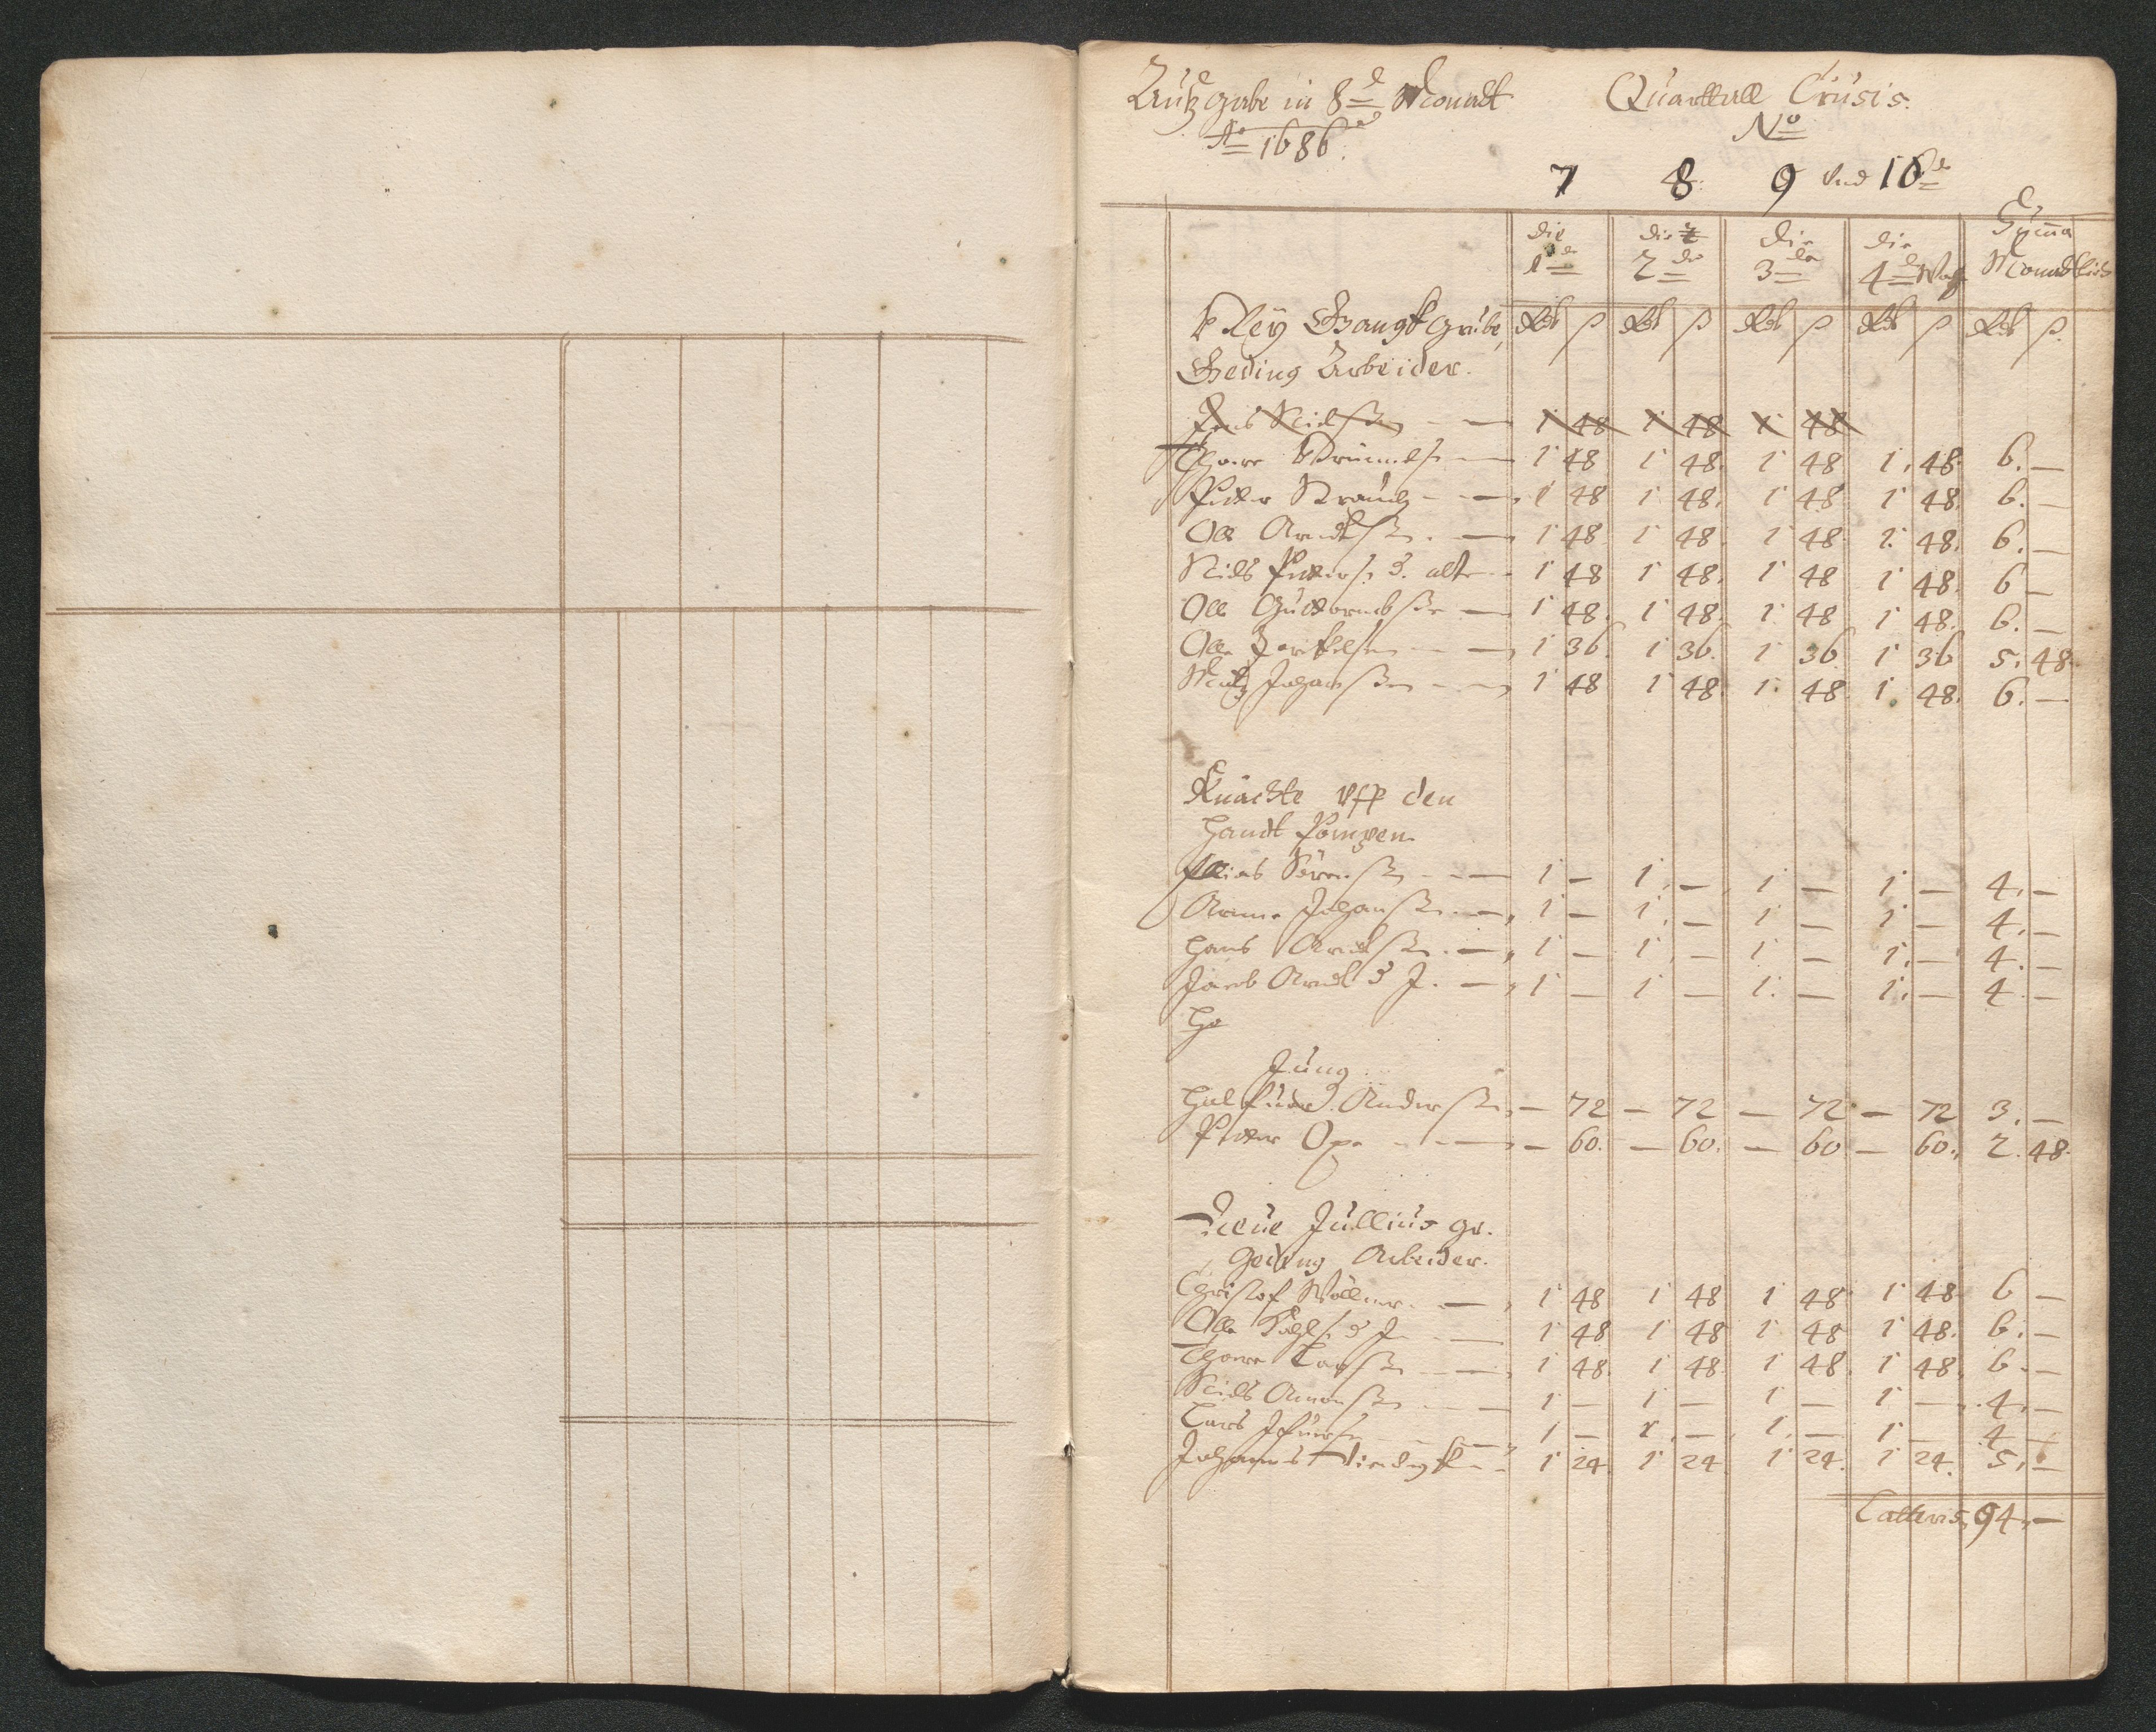 Autzgabe in 8de Monadt Quartall Crucis.
Ao 1686. No
7 8. 9 und 10de
die die die die Summa
1de 2de 3de 4de Monadtlich
Bley Gangk grube, Rdr ß Rdr ß Rdr ß Rdr ß Rdr ß.
Geding Arbeider.
Jens Nielssen 1 48 1 48 1 48
Thore 1 48 1 48. 1 48 1. 48. 6. —
Peder 1 48 1 48. 1 48 1 48. 6. —
Ole Arndtssen 1 48 1 48. 1 48 1. 48. 6. —
Niels Peders. d. alte 1 48 1 48. 1 48 1 48. 6 —
Ole Guttormbssen 1 48. 1 48. 1 48 1 48. 6. —
Olle 1 36. 1 36. 1 36 1 36 5. 48.
Johanssen 1 48 1 48. 1. 48 1. 48. 6. —
Knächte uff den
Handt Pompen
Sörenssen 1 — 1. — 1 — 1 — 4. —
Arne Johanssen 1 — 1. — 1 — 1 — 4. —
Hans Arndtssen 1 — 1. — 1 — 1. — 4. —
Jacob Arndts d J. 1 — 1 — 1. — 1. — 4. —
Ha
Jung
Halfuor Anderssen — 72 — 72 — 72 — 72 3. —
Peder Ope — 60. — 60. — 60 — 60. 2. 48.
Neue Jullius gr.
Geding Arbeider.
Christof Wöllner 1 48 1 48 1 48 1 48 6 —
Olle d J 1 48 1 48 1 48 1 48. 6. —
Thore Larssen 1 48. 1 48 1 48. 1 48. 6. —
Niels Amonssen 1 — 1 — 1 — 1 — 4. —
Lars 1 — 1. — 1. — 1 — 4 —
Johannes 1 24. 1 24 1 24. 1 24. 5. —
Latteris, 94. —